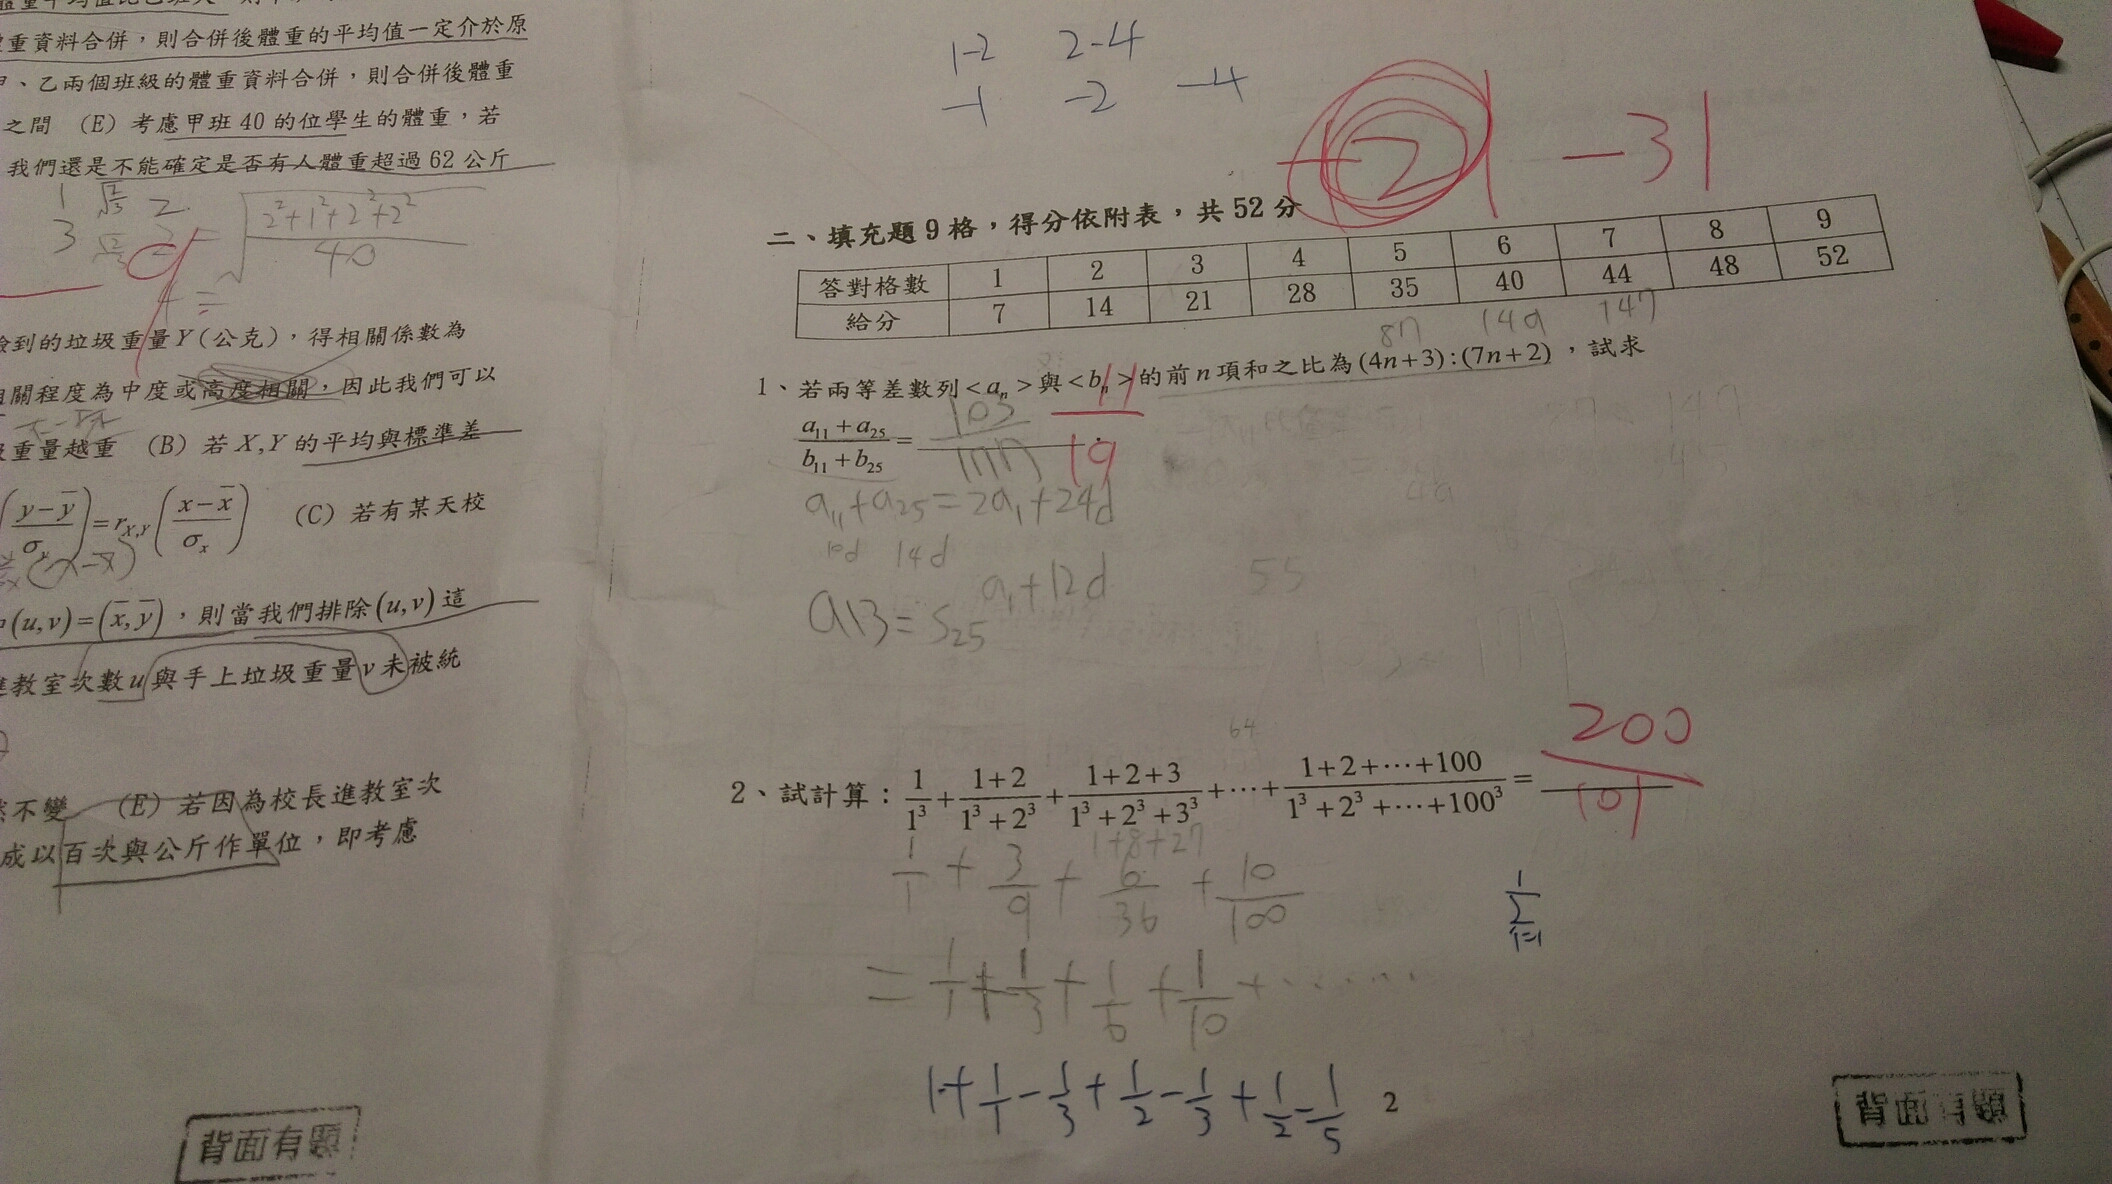 重資料合併，則合併後體重的平均值一定介於原
、乙兩個班級的體重資料合併，則合併後體重
之間 (E) 考慮甲班 40 的位學生的體重，若
我們還是不能確定是否有人體重超過 62 公斤
1
3
2
√(2²+1²+2²+2²)/40
到的垃圾重量Y(公克)，得相關係數為
關程度為中度或高度相關，因此我們可以
重量越重 (B) 若 X,Y 的平均與標準差
((y-ȳ)/σy)=r_X,Y((x-x̄)/σx) (C) 若有某天校
(x-x̄)
(u,v)=(x̄,ȳ)，則當我們排除(u,v)這
教室次數u與手上垃圾重量v未被統
不變 (E) 若因為校長進教室次
成以百次與公斤作單位，即考慮
背面有題
1-2 2-4
-1 -2 -4
-21 -31
二、填充題 9 格，得分依附表，共 52 分
答對格數 1 2 3 4 5 6 7 8 9
給分 7 14 21 28 35 40 44 48 52
87 149 147
1、若兩等差數列<aₙ>與<bₙ>的前n項和之比為(4n+3):(7n+2)，試求
(a₁₁+a₂₅)/(b₁₁+b₂₅)= 103/177 11/19
a₁₁+a₂₅=2a₁+24d
10d 14d
a₁+12d
55
a13=S₂₅
64
2、試計算：1/1³+(1+2)/(1³+2³)+(1+2+3)/(1³+2³+3³)+⋯+(1+2+⋯+100)/(1³+2³+⋯+100³)= 200/101
1+8+27
1/1+3/9+6/36+10/100
=1/1+1/3+1/6+1/10+⋯⋯
1+1/1-1/3+1/2-1/3+1/2=1/5
2
背面有題